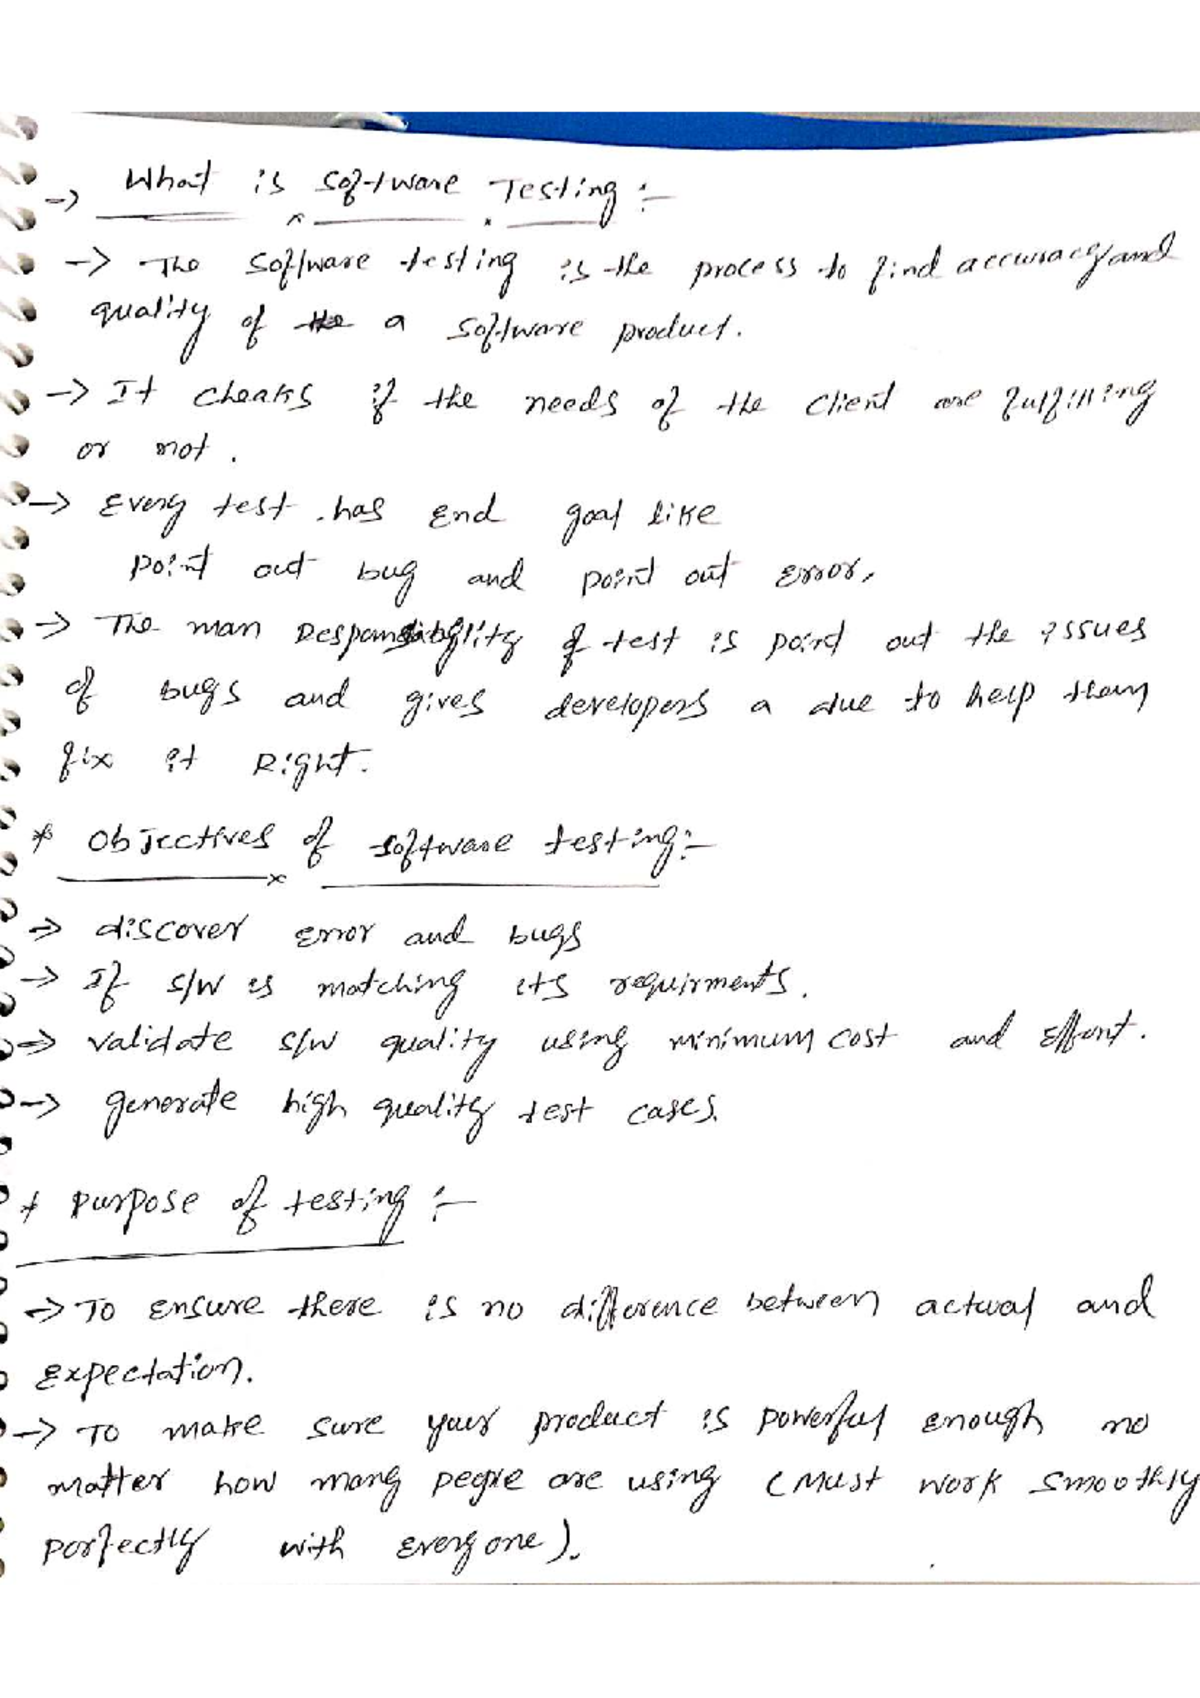 -> What is Software Testing :-
-> The Software testing is the process to find accuracy and
quality of the a software product.
-> It cheaks if the needs of the client are fulfilling
or not.
-> Every test has End goal like
point out bug and point out error,
-> The man Responsibility of test is point out the issues
of bugs and gives developers a due to help them
fix it Right.
* Objectives of software testing:-
-> discover error and bugs
-> If S/W is matching its requirments.
-> validate S/W quality using minimum cost and Effort.
-> generate high quality test cases.
* purpose of testing :-
-> To Ensure there is no difference between actual and
Expectation.
-> To make sure your product is powerful enough no
matter how many people are using (Must work smoothly
perfectly with Everyone).